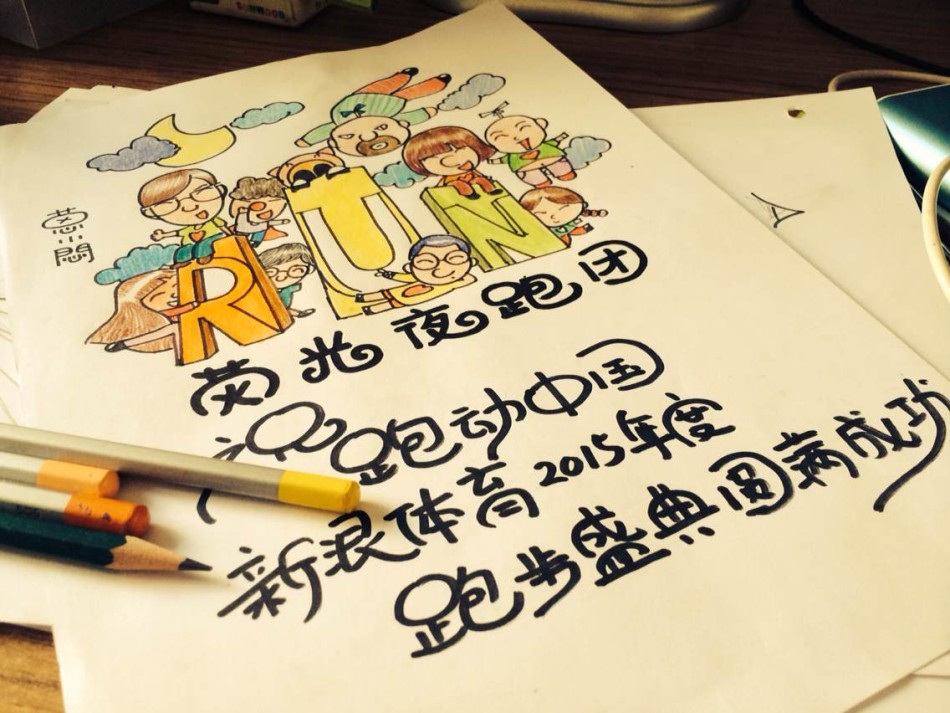 RUN
荧光夜跑团
祝跑动中国
新浪体育2015年度
跑步盛典圆满成功